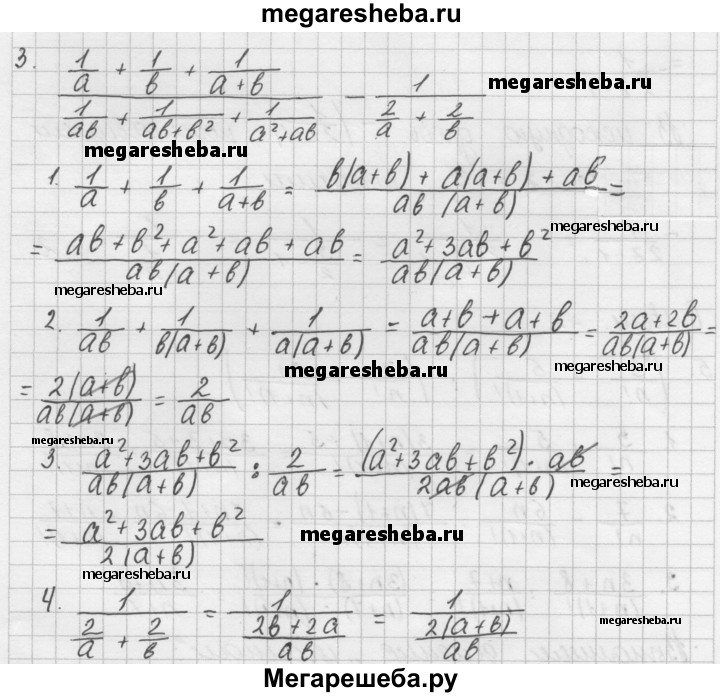 megaresheba.ru
3. (1/a + 1/b + 1/(a+b)) / (1/ab + 1/(ab+b²) + 1/(a²+ab)) − 1/(2/a + 2/b)
megaresheba.ru
megaresheba.ru
1. 1/a + 1/b + 1/(a+b) = (b(a+b) + a(a+b) + ab) / (ab(a+b)) =
megaresheba.ru
= (ab+b²+a²+ab+ab) / (ab(a+b)) = (a²+3ab+b²) / (ab(a+b))
megaresheba.ru
2. 1/ab + 1/(b(a+b)) + 1/(a(a+b)) = (a+b+a+b) / (ab(a+b)) = (2a+2b) / (ab(a+b)) =
megaresheba.ru
megaresheba.ru
= 2(a+b) / (ab(a+b)) = 2/ab
megaresheba.ru
3. (a²+3ab+b²) / (ab(a+b)) : 2/ab = ((a²+3ab+b²)·ab) / (2ab(a+b)) =
megaresheba.ru
= (a²+3ab+b²) / (2(a+b))
megaresheba.ru
megaresheba.ru
4. 1/(2/a + 2/b) = 1/((2b+2a)/ab) = 1/(2(a+b)/ab)
megaresheba.ru
megaresheba.ru
Мегарешеба.ру